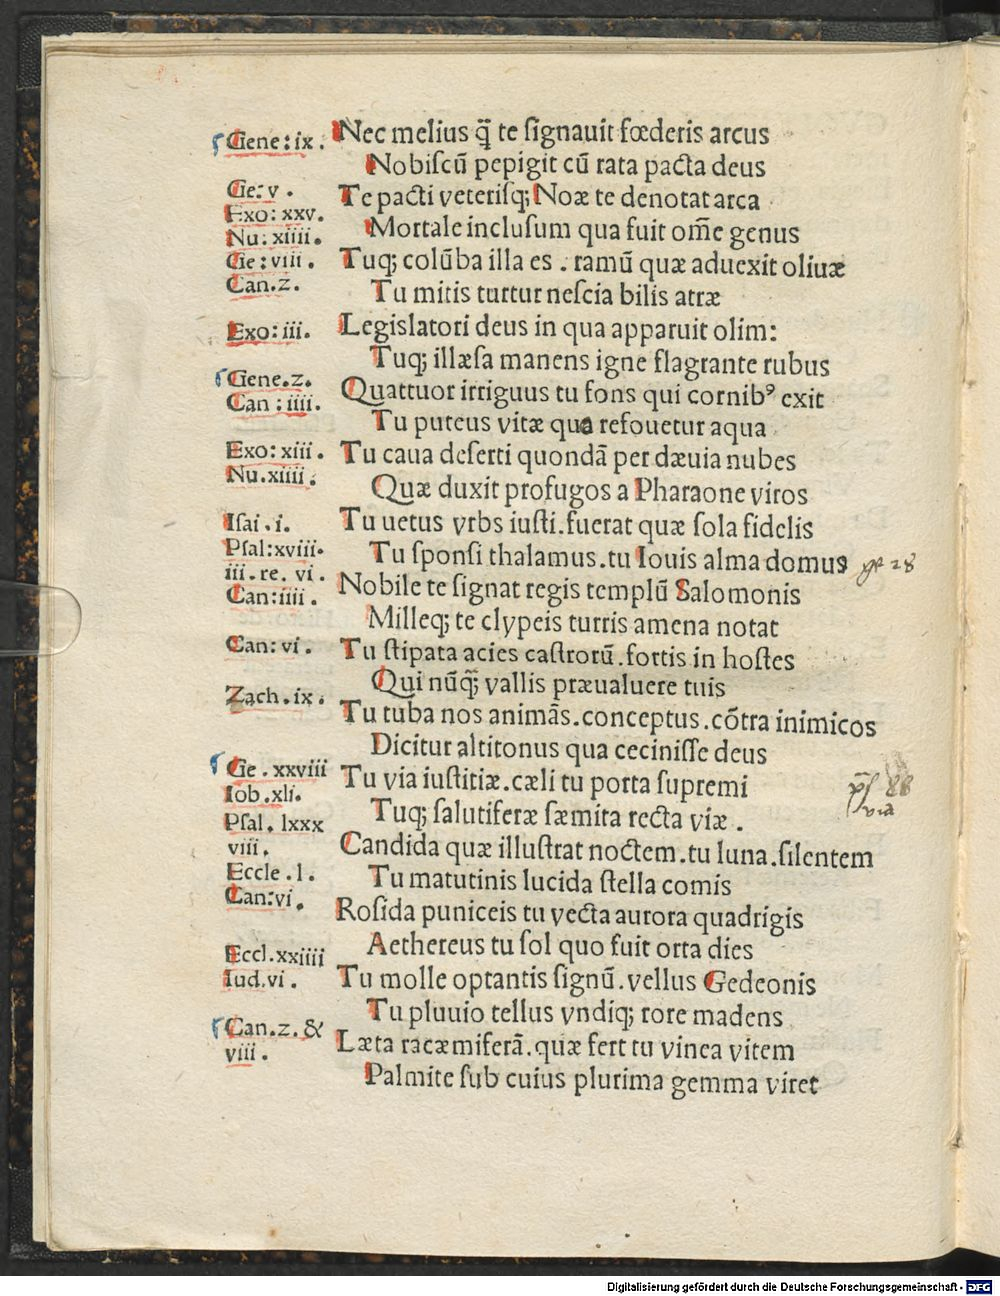 Gene: ix.
Nec melius q̄ te ſignauit fœderis arcus
Nobiſcū pepigit cū rata pacta deus
Ge: v.
Te pacti veteriſq; Noæ te denotat arca
Exo: xxv.
Mortale incluſum qua fuit om̄e genus
Nu: xiiii.
Ge: viii.
Tuq; colūba illa es. ramū quæ aduexit oliuæ
Can. z.
Tu mitis turtur neſcia bilis atræ
Exo: iii.
Legislatori deus in qua apparuit olim:
Tuq; illæſa manens igne flagrante rubus
Gene. z.
Quattuor irriguus tu fons qui cornibꝰ exit
Can: iiii.
Tu puteus vitæ quo refouetur aqua
Exo: xiii.
Tu caua deſerti quondā per dæuia nubes
Nu. xiiii.
Quæ duxit profugos a Pharaone viros
Iſai. i.
Tu uetus vrbs iuſti. fuerat quæ ſola fidelis
Pſal: xviii.
Tu ſponſi thalamus. tu Iouis alma domus ge 28
iii. re. vi.
Nobile te ſignat regis templū Salomonis
Can: iiii.
Milleq; te clypeis turris amena notat
Can: vi.
Tu ſtipata acies caſtrorū. fortis in hoſtes
Qui nūq̄; vallis præualuere tuis
Zach. ix.
Tu tuba nos animās. conceptus. cōtra inimicos
Dicitur altitonus qua ceciniſſe deus
Ge. xxviii
Tu via iuſtitiæ. cæli tu porta ſupremi
pſ 88
via
Iob. xli.
Tuq; ſalutiferæ ſæmita recta viæ.
Pſal. lxxx
viii.
Candida quæ illuſtrat noctem. tu luna. ſilentem
Eccle. l.
Tu matutinis lucida ſtella comis
Can: vi.
Roſida puniceis tu vecta aurora quadrigis
Aethereus tu ſol quo fuit orta dies
Eccl. xxiiii
Iud. vi.
Tu molle optantis ſignū. vellus Gedeonis
Tu pluuio tellus vndiq; rore madens
Can. z. &
viii.
Læta racæmiferā. quæ fert tu vinea vitem
Palmite ſub cuius plurima gemma viret
Digitalisierung gefördert durch die Deutsche Forschungsgemeinschaft - DFG